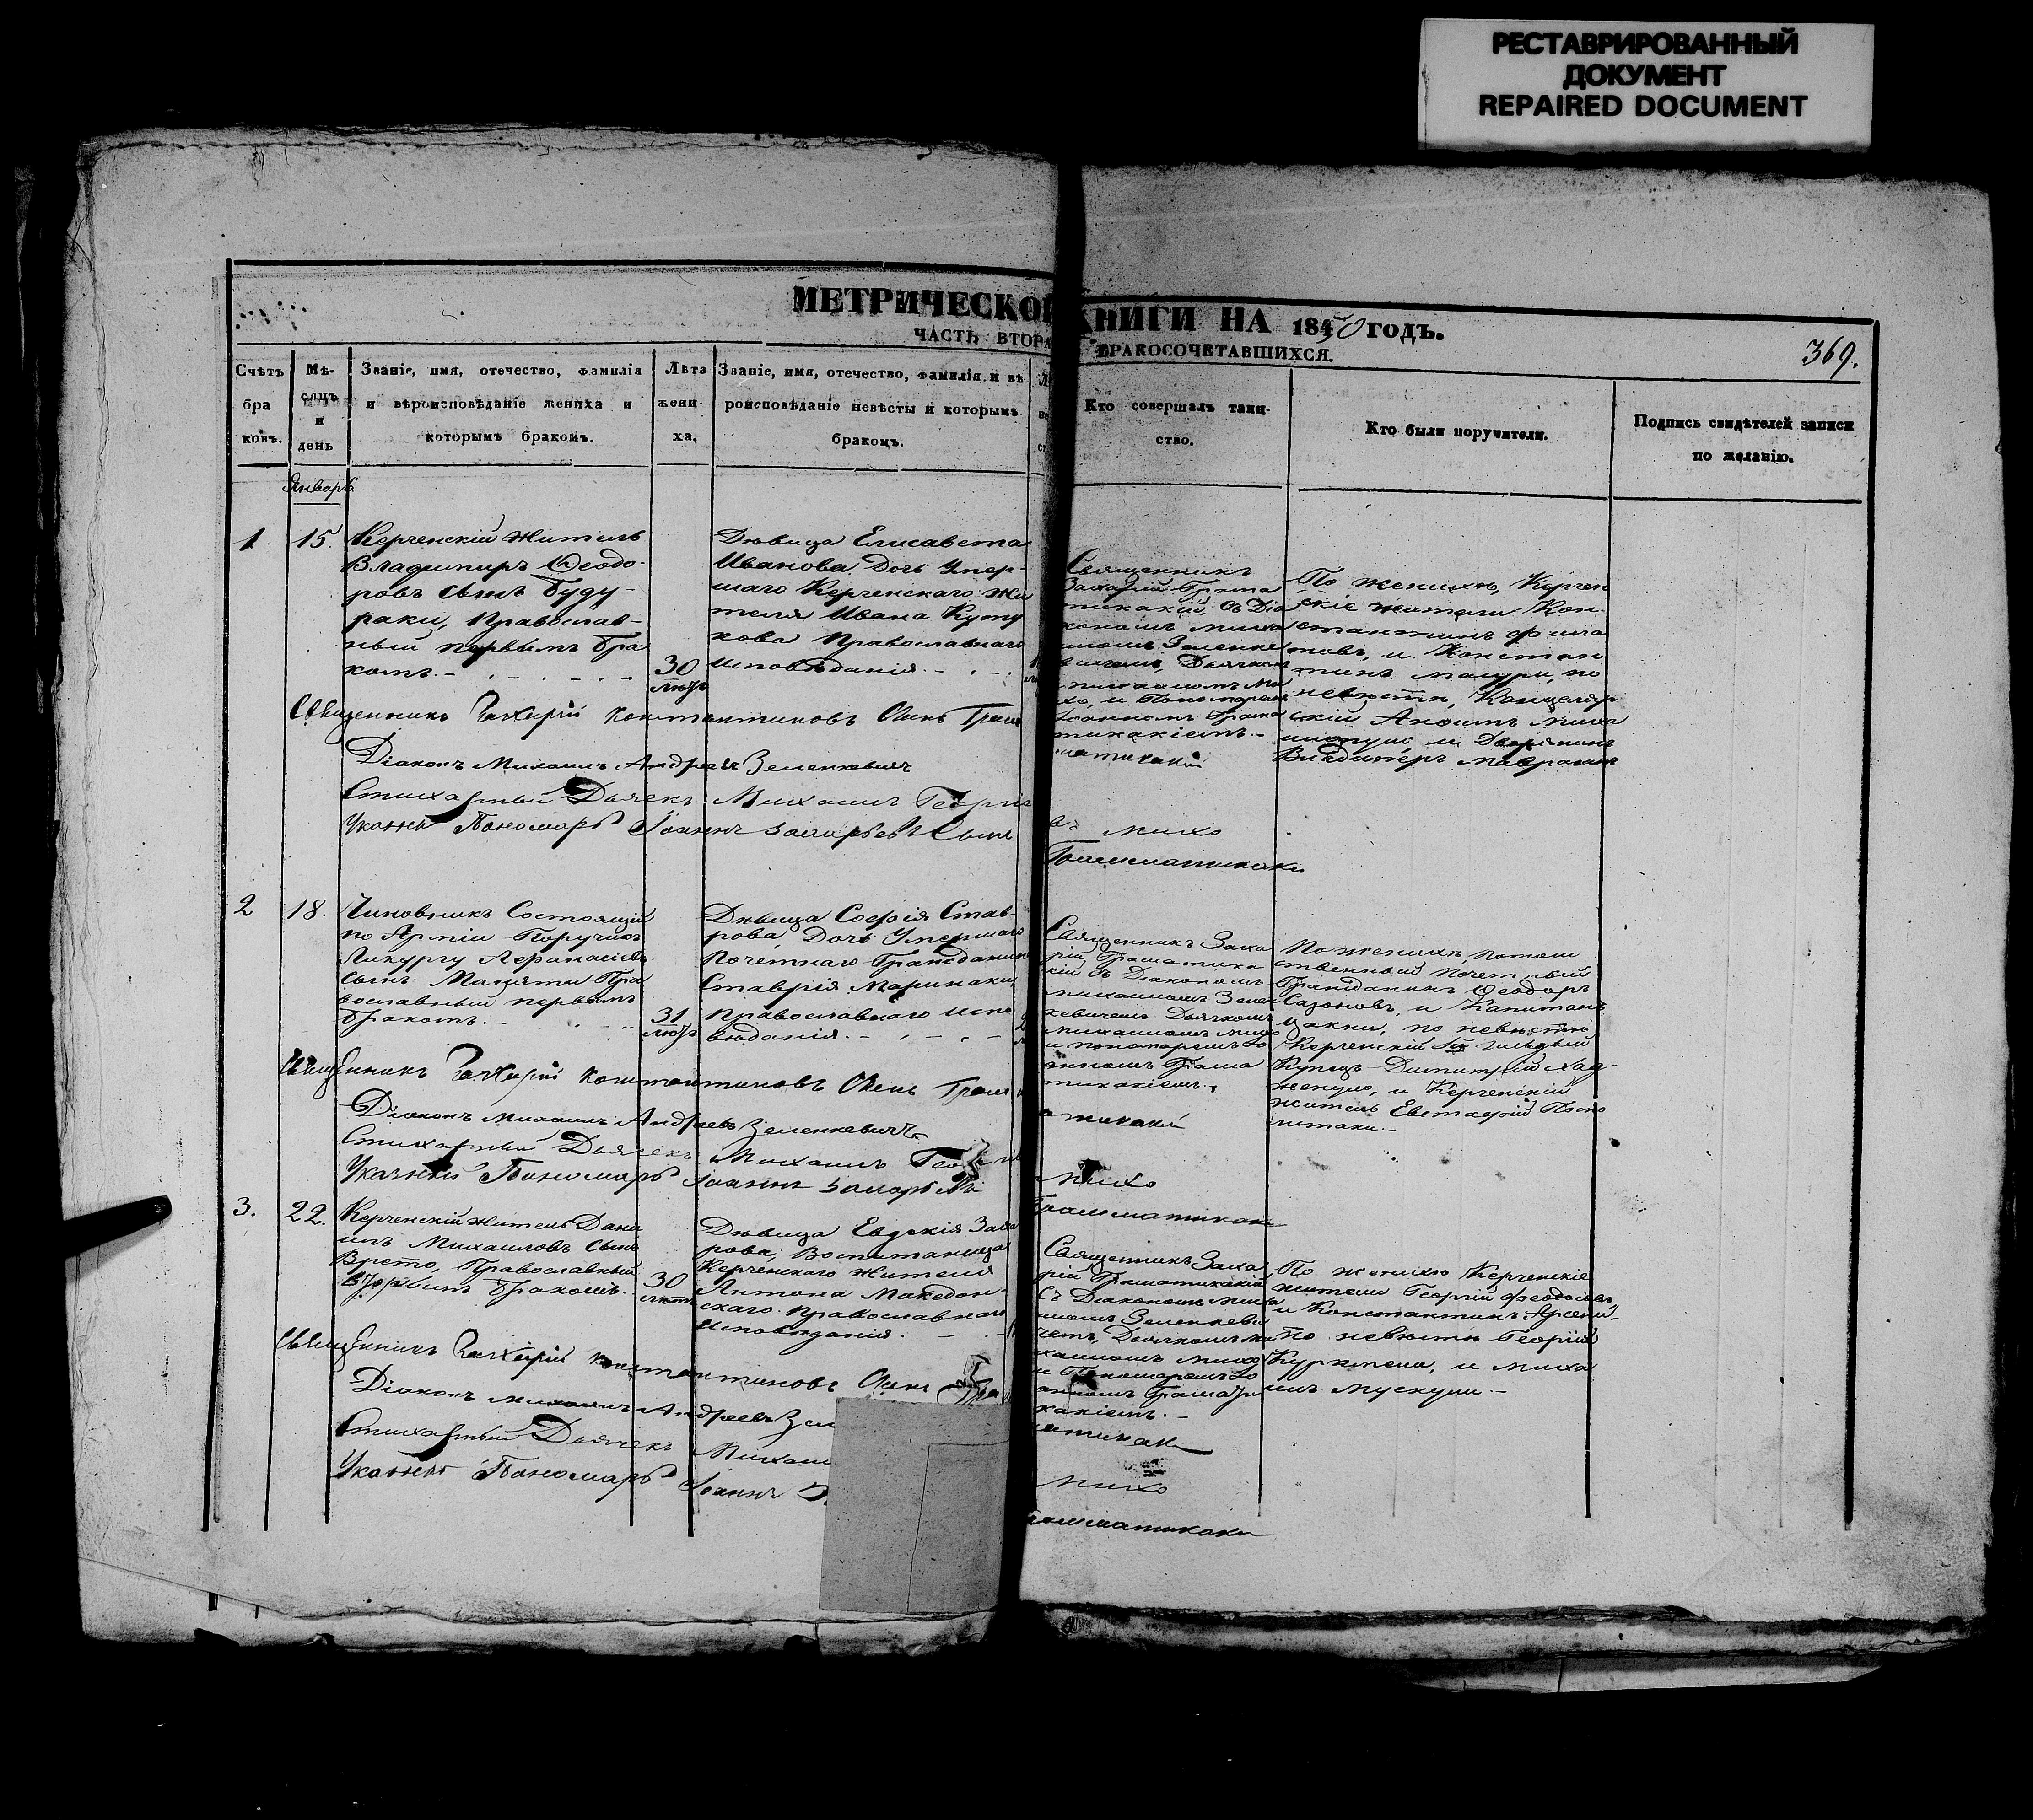 РЕСТАВРИРОВАННЫЙ
ДОКУМЕНТ
REPAIRED DOCUMENT
МЕТРИЧЕСКОЙ КНИГИ НА 1850 ГОДЪ.
ЧАСТЬ ВТОРА БРАКОСОЧЕТАВШИХСЯ.
369.
Счѣтъ
бра
ковъ.
Мѣ-
сяцъ
и
день
Званіе, имя, отечество, фамилія
и вѣроисповѣданіе жениха и
которымъ бракомъ.
Лѣта
жени-
ха.
Званіе, имя, отечество, фамилія и вѣ
роисповѣданіе невѣсты и которымъ
бракомъ.
Кто совершалъ таин-
ство.
Кто были поручители.
Подпись свидѣтелей записи
по желанію.
Январь
1
15.
Керченскій житель
Владимиръ Ѳеодо-
ровъ сынъ Буду-
раки, Православ-
ный первымъ бра
комъ.
30
лѣтъ
Дѣвица Елисавета
Иванова дочь умер-
шаго Керченскаго жи
теля Ивана Куту
кова Православнаго
исповѣданія.
Священникъ
Захарій Грама
тикакій, съ Діа
кономъ Миха
иломъ Зеленке
вичемъ, Дьячкомъ
Михаиломъ Ми
хо, и Пономаремъ
Іоанномъ Грама
тикакіемъ.
По женихѣ, Керчен
скіе жители Кон-
стантинъ
товъ, и Констан
тинъ Мацури, по
невѣстѣ, Канцеляр
скій
и Дворянинъ
Владимеръ
Священникъ Захарій Константиновъ Сынъ Граматикакій
Діаконъ Михаилъ Андреевъ Зеленкевичъ
Стихарный Дьячекъ Михаилъ Георгіе Михо
Указный Пономарь Іоаннъ Захарьевъ Сынъ Грамматикаки
2
18.
Чиновникъ Состоящій
по Арміи Поручикъ
Ликургу Аѳанасіевъ
сынъ Мацяти Пра
вославный первымъ
бракомъ.
31
лѣтъ
Дѣвица Софія Став-
рова, Дочь Умершаго
Почетнаго Гражданина
Ставрія Маринаки,
Православнаго испо
вѣданія.
Священникъ Заха
рій Граматика
кій съ Діакономъ
Михаиломъ Зелен
кевичемъ Дьячкомъ
Михаиломъ Михо
и пономаремъ Іо
анномъ Грама
тикакіемъ.
По женихѣ, Потом
ственный Почетный
Гражданинъ Ѳеодоръ
Сазоновъ, и Капитанъ
Цакни, по невѣстѣ
Керченскій гильдіи
Купецъ Димитрій Хад-
и Керченскій
житель Евстафій
Священникъ Захарій Константиновъ Сынъ Граматикакій
Діаконъ Михаилъ Андреевъ Зеленкевичъ
Стихарный Дьячекъ Михаилъ Георгіе Михо
Указный Пономарь Іоаннъ Грамматикаки
3.
22.
Керченскій житель Дани
илъ Михаиловъ сынъ
Врето, Православный
вторымъ бракомъ.
30
лѣтъ
Дѣвица Евдокія Заха
рова, Воспитаница
Керченскаго жителя
Антона Македон-
скаго Православнаго
исповѣданія.
Священникъ Заха
рій Граматикакій
съ Діакономъ Миха
иломъ Зеленкеви
чемъ, Дьячкомъ Ми
хаиломъ Михо
и Пономаремъ Іо
анномъ Грамати
какіемъ.
По женихѣ Керченскіе
жители Георгій Ѳеодосіевъ
и Константинъ
по невѣстѣ Георгій
и Миха
илъ Мускули.
Священникъ Захарій Константиновъ Сынъ
Діаконъ Михаилъ Андреевъ Зел
Стихарный Дьячекъ Михаил Михо
Указный Пономарь Іоаннъ